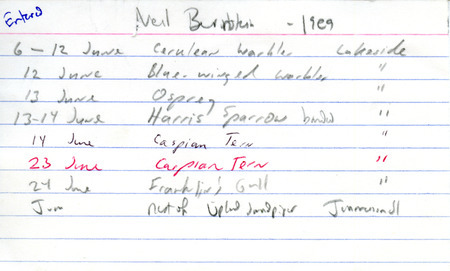 Entered
Neil Bernstein - 1989
6-12 June Cerulean Warbler Lakeside
12 June Blue-winged warbler "
13 June Osprey "
13-14 June Harris Sparrow "
14 June Caspian Tern
23 June Caspian Tern "
24 June Franklin's Gull "
June nest of Upland Sandpiper